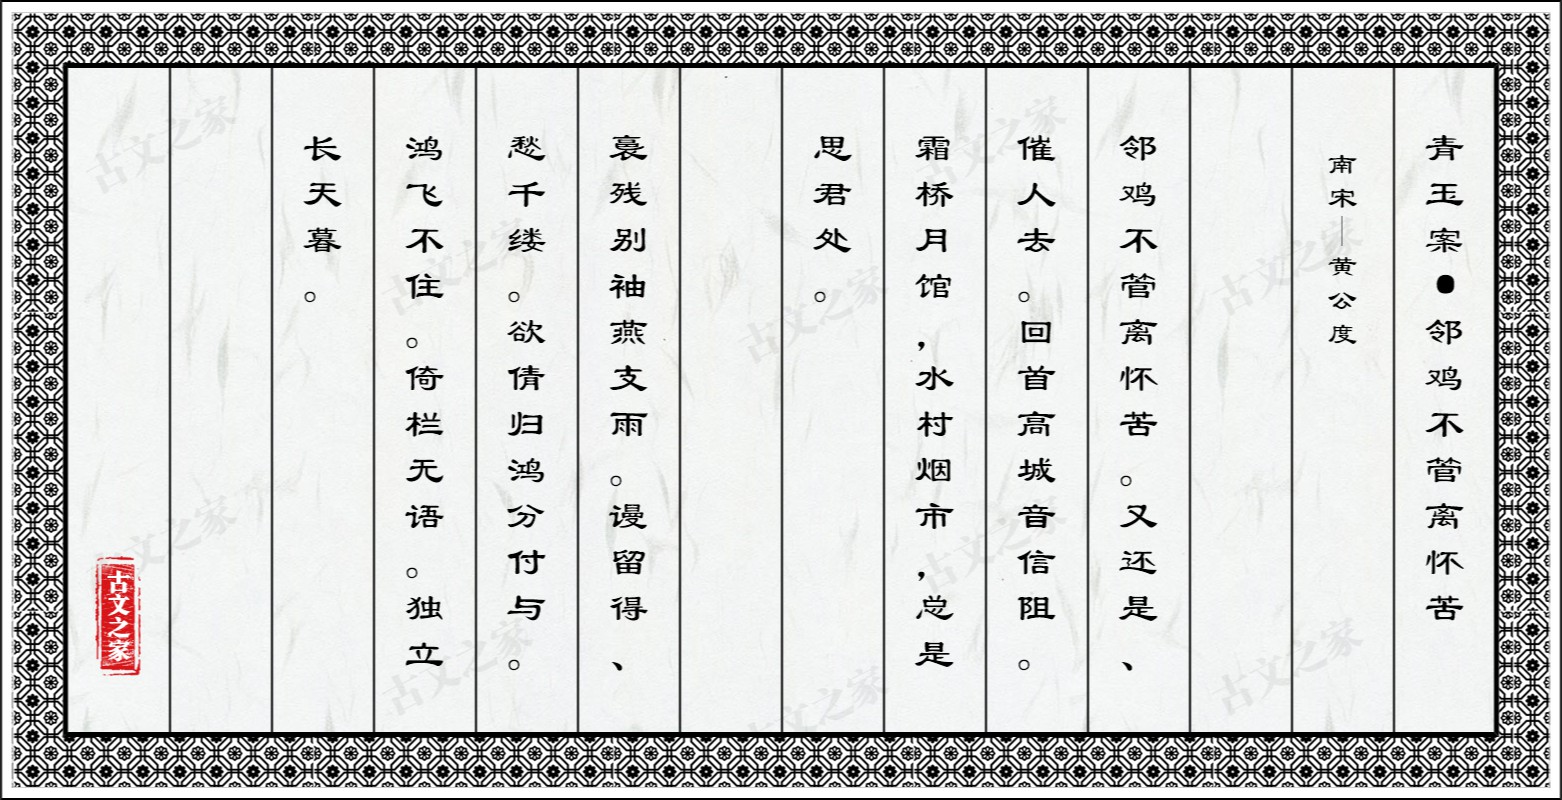 青玉案●邻鸡不管离怀苦
南宋｜黄公度
邻鸡不管离怀苦。又还是、
催人去。回首高城音信阻。
霜桥月馆，水村烟市，总是
思君处。
裛残别袖燕支雨。谩留得、
愁千缕。欲倩归鸿分付与。
鸿飞不住。倚栏无语。独立
长天暮。
古文之家